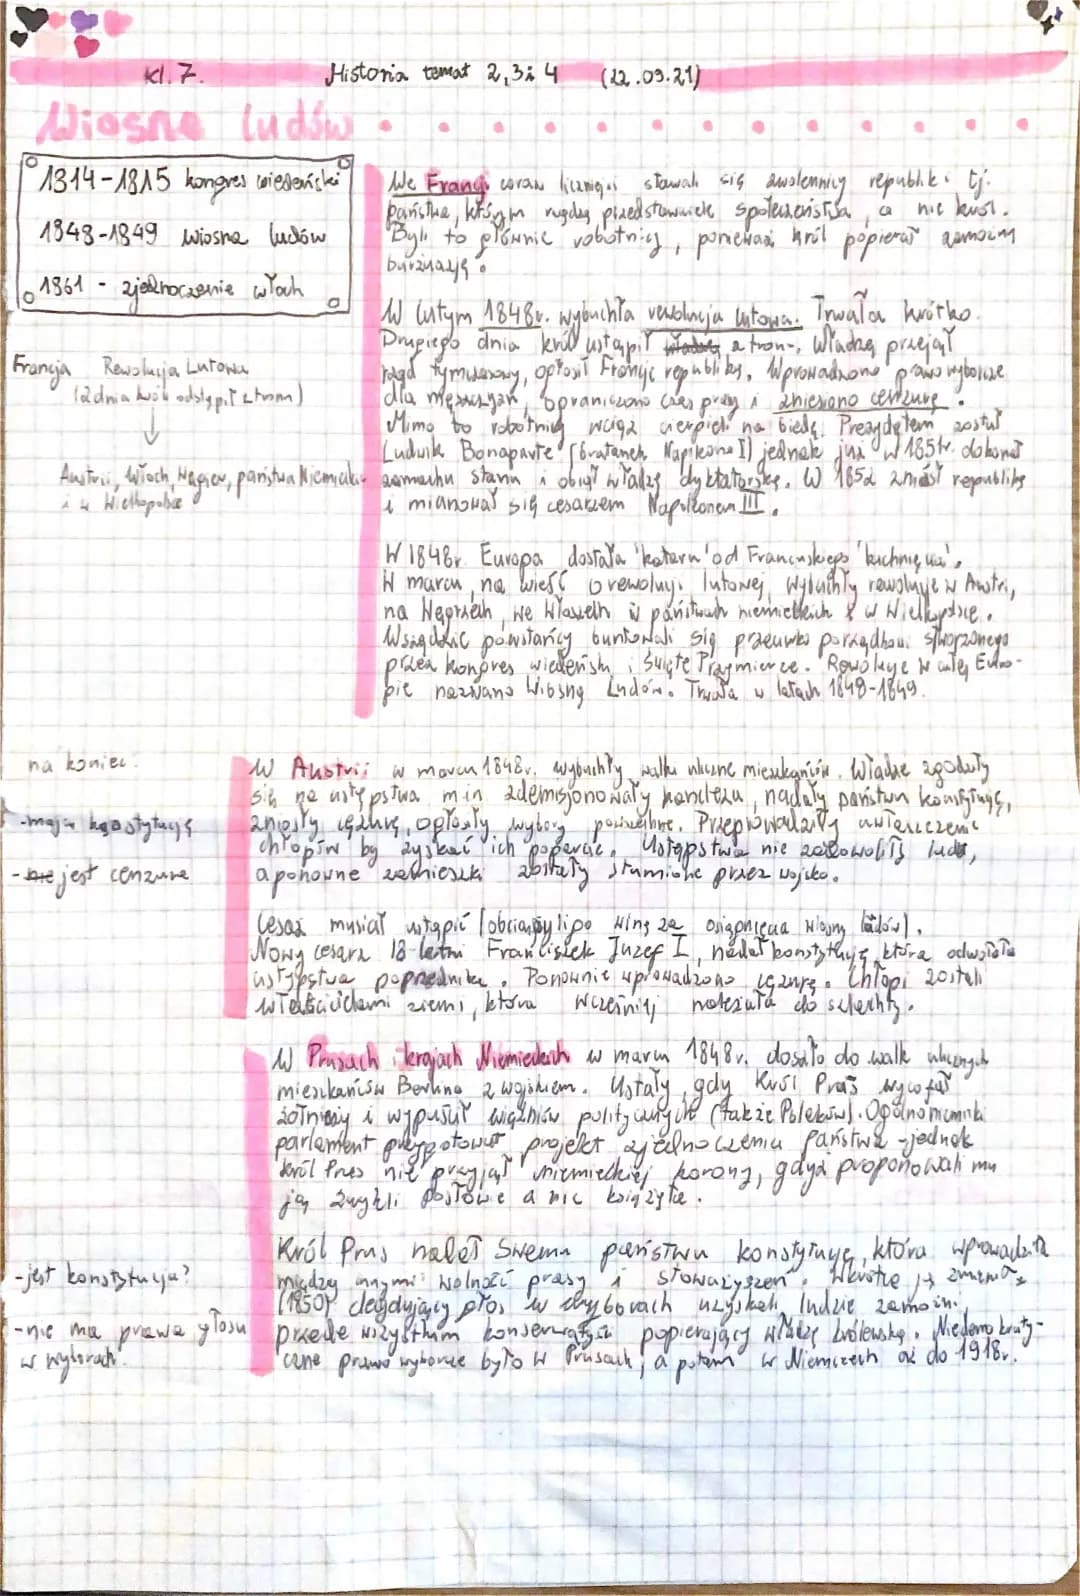 Kl. 7. Historia temat 2, 3 i 4 (22.09.21)
Wiosna ludów
1814-1815 kongres wiedeński
1848-1849 wiosna ludów
1861 - zjednoczenie włoch
Francja Rewolucja Lutowa
(2 dnia król odstąpił z tronu)
Austrii, Włoch, Węgier, państwa Niemieckie
i w Wielkopolsce
We Francji coraz liczniejsi stawali się zwolennicy republiki tj.
państwa, którym rządzą przedstawiciele społeczeństwa, a nie król.
Byli to głównie robotnicy, ponieważ król popierał zamożną
burżuazję.
W lutym 1848r. wybuchła rewolucja lutowa. Trwała krótko.
Drugiego dnia król ustąpił władzę z tronu. Władzę przejął
rząd tymczasowy, ogłosił Francję republiką. Wprowadzono prawo wyborcze
dla mężczyzn, ograniczono czas pracy i zniesiono cenzurę.
Mimo to robotnicy wciąż cierpieli na biedę. Prezydętem został
Ludwik Bonaparte (bratanek Napoleona I) jednak już w 1851r. dokonał
zamachu stanu i objął władzę dyktatorską. W 1852 zniósł republikę
i mianował się cesarzem Napoleonem III.
W 1848r. Europa dostała 'kataru' od Francuskiego 'kichnięcia'.
W marcu, na wieść o rewolucji lutowej, wybuchły rewolucje w Austri,
na Węgrzech, we Włoszech i w państwach niemieckich i w Wielkopolsce.
Wszędzie powstańcy buntowali się przeciwko porządkowi stworzonego
przez kongres wiedeński i Święte Przymierze. Rewolucje w całej Euro-
pie nazwano Wiosną Ludów. Trwała w latach 1848-1849.
na koniec:
-mają konstytucję
-nie jest cenzura
W Austrii w marcu 1848r. wybuchły walki uliczne mieszkańców. Władze zgodziły
się na ustępstwa min zdemisjonowały kanclerza, nadały państwu konstytucję,
zniosły cęzurę, ogłosiły wybory powszechne. Przeprowadziły uwłaszczenie
chłopów by zyskać ich poparcie. Ustępstwa nie zadowoliły ludu,
a ponowne zamieszki zostały stłumione przez wojsko.
Cesaż musiał ustąpić (obciążyli go winą za osiągnięcia wiosny ludów).
Nowy cesarz 18-letni Franciszek Juzef I, nadał konstytucję, która odwołała
ustępstwa poprzednika. Ponownie wprowadzono cęzurę. Chłopi zostali
właścicielami ziemi, która wcześniej należała do szlachty.
W Prusach i krajach Niemieckich w marcu 1848r. doszło do walk ulicznych
mieszkańców Berlina z wojskiem. Ustały, gdy Król Prus wycofał
żołnierzy i wypuścił więźniów politycznych (także Polaków). Ogólnoniemiecki
parlament przygotował projekt zjednoczenia państwa - jednak
król Prus nie przyjął niemieckiej korony, gdyż proponowali mu
ją zwykli posłowie a nie książęta.
-jest konstytucja?
-nie ma prawa głosu
w wyborach.
Król Prus nadał Swemu państwu konstytucję, która wprowadziła
między innymi wolność prasy i stowarzyszeń. Wkrótce ją zmienił
(1850) decydujący głos w wyborach uzyskali ludzie zamożni,
przede wszystkim konserwatyści popierający władzę królewską. Niedemokraty-
czne prawo wyborcze było w Prusach, a potem w Niemczech aż do 1918r.